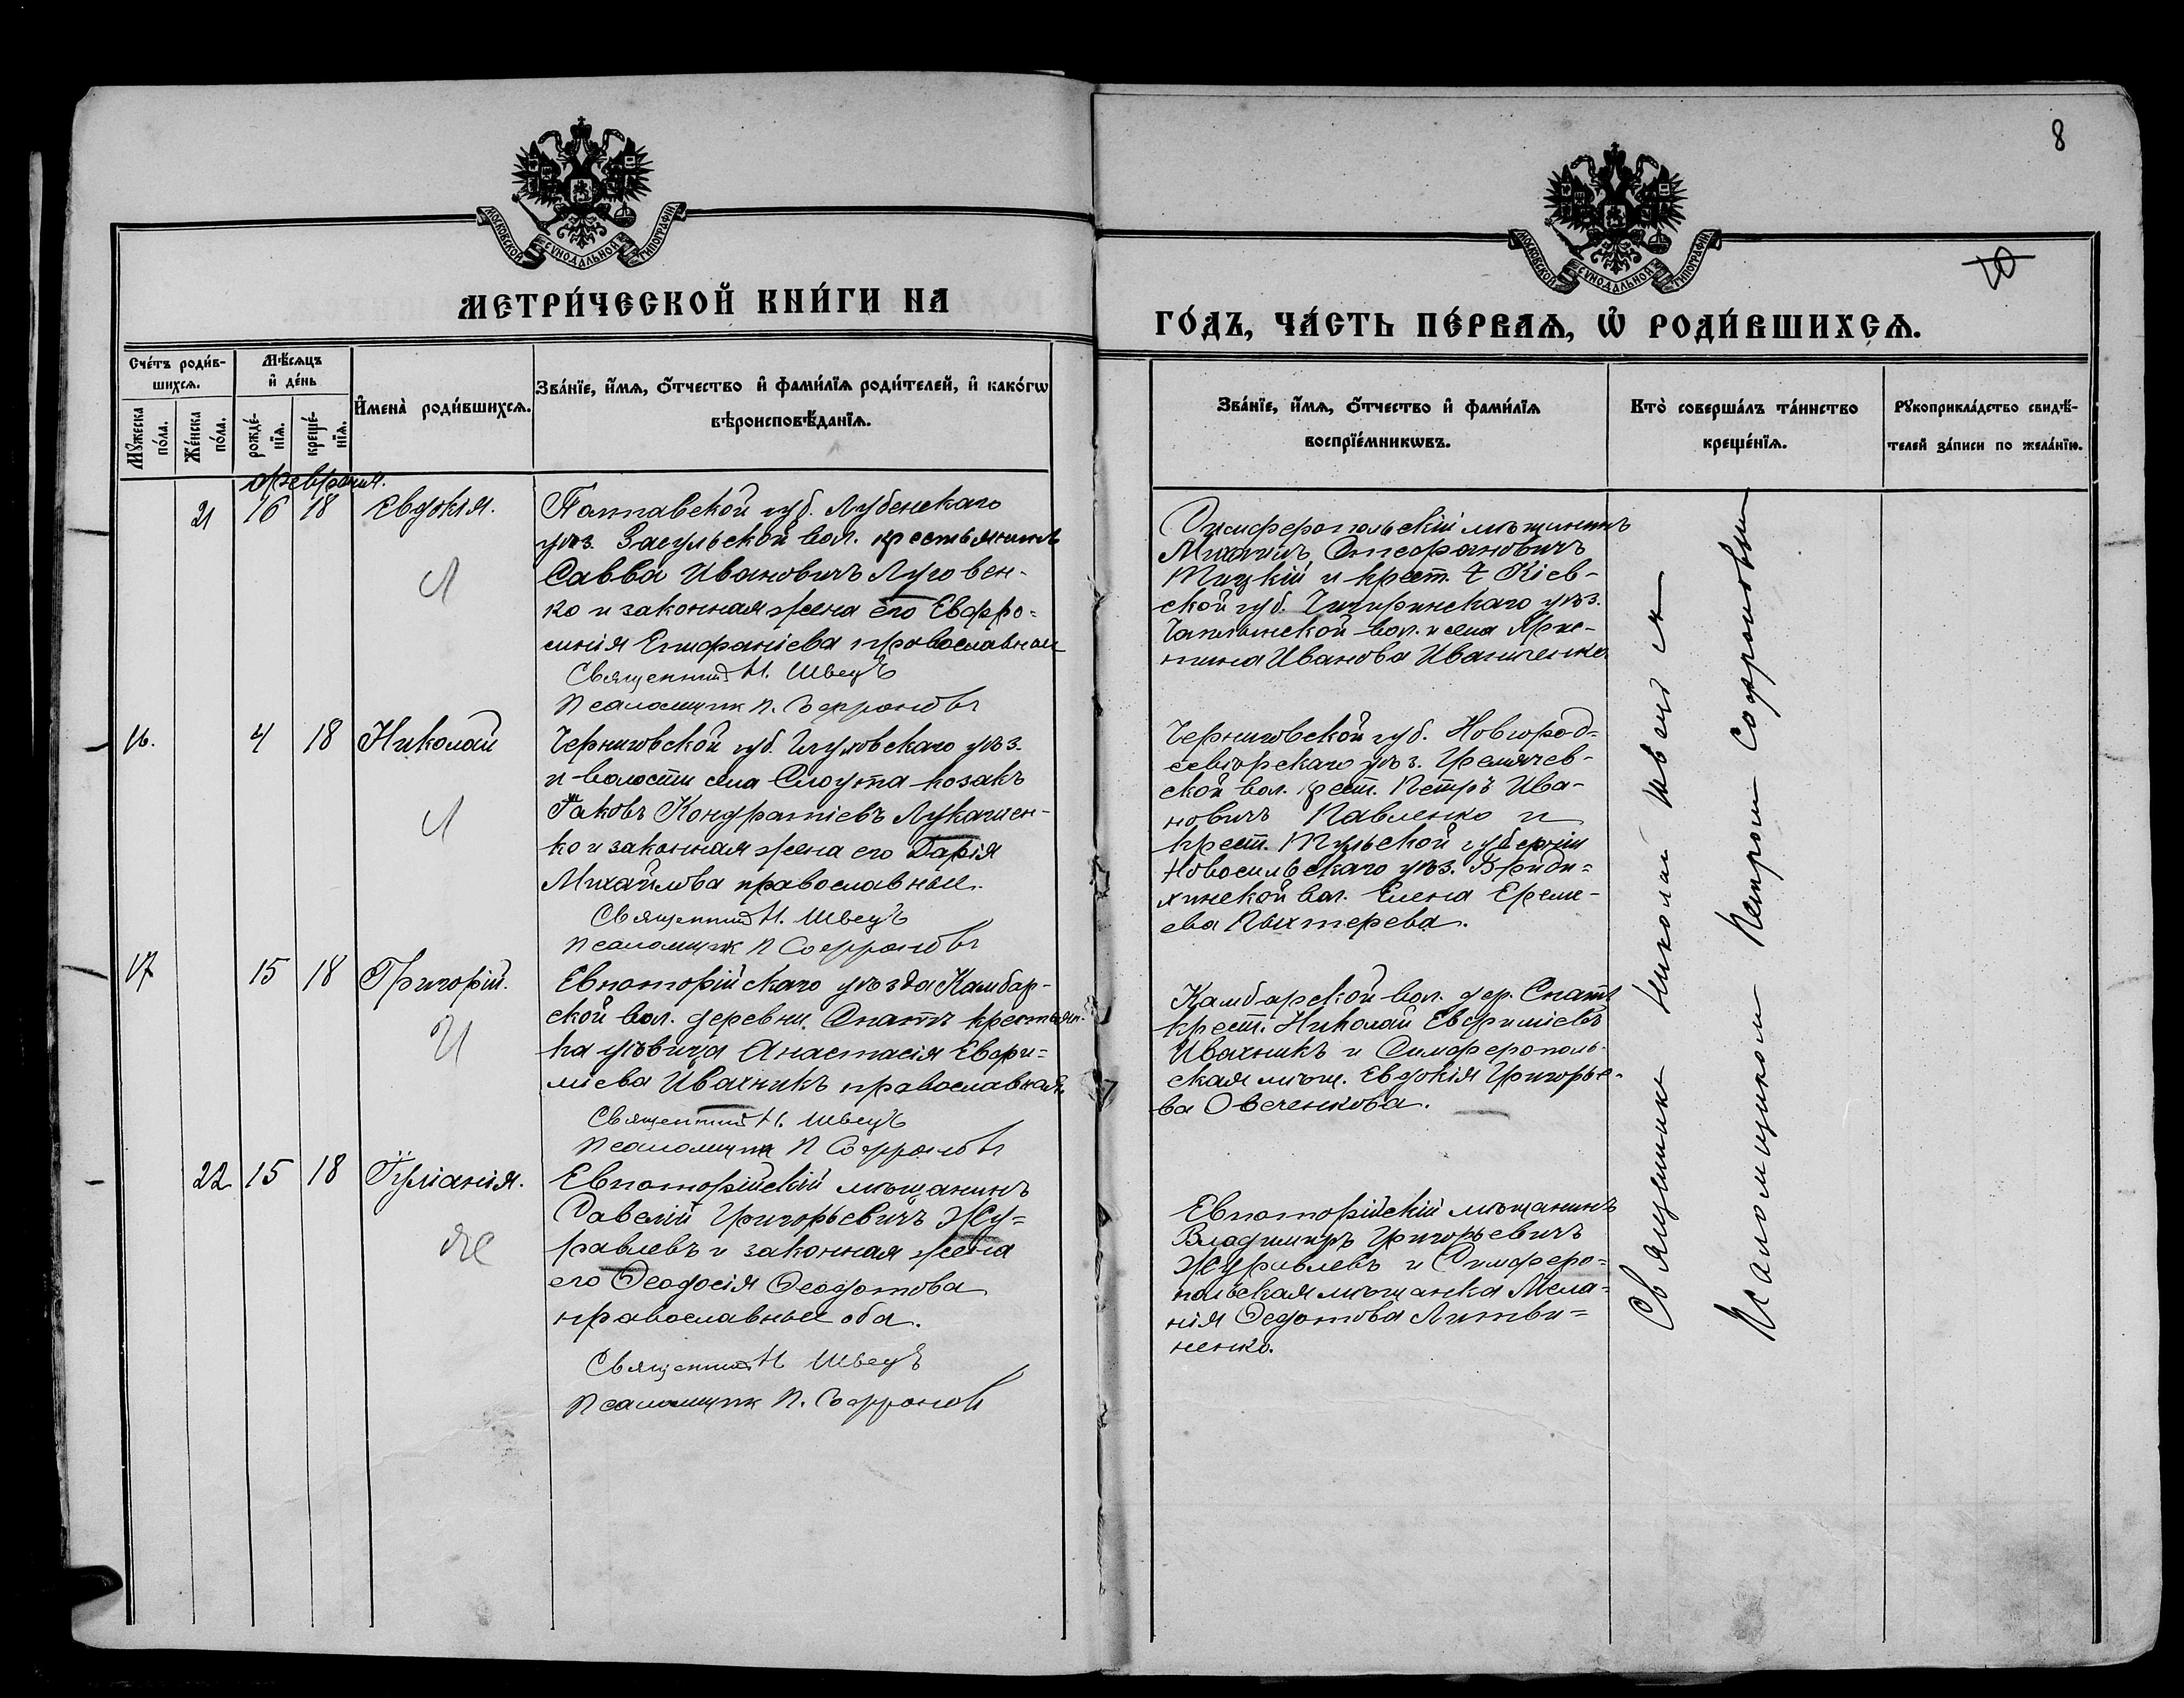 8
МОСКОВСКОЙ СѴНОДАЛЬНОЙ ТИПОГРАФІИ
МОСКОВСКОЙ СѴНОДАЛЬНОЙ ТИПОГРАФІИ
10
МЕТРИ́ЧЕСКОЙ КНИ́ГИ НА
ГО́ДЪ, ЧА́СТЬ ПЕ́РВАѦ, Ѡ҃ РОДИ́ВШИХСѦ.
Сче́тъ роди́в-
шихсѧ.
Мѣ́сѧцъ
и҆ де́нь
Мꙋ́жеска
по́ла.
Же́нска
по́ла.
рожде́-
нїѧ.
креще́-
нїѧ.
И҆мена̀ роди́вшихсѧ.
Зва́нїе, и҆́мѧ, ѻ҆́тчество и҆ фами́лїѧ роди́телей, и҆ како́гѡ
вѣроисповѣ́данїѧ.
Зва́нїе, и҆́мѧ, ѻ҆́тчество и҆ фами́лїѧ
воспрїе́мникѡвъ.
Кто̀ соверша́лъ та́инство
креще́нїѧ.
Рꙋкоприкла́дство свидѣ́-
телей за́писи по жела́нїю.
февраля.
21 16 18 Евдокія.
Л
Полтавской губ. Лубенскаго
уѣз. Засульской вол. крестьянинъ
Савва Ивановичъ Луговен-
ко и законная жена его Евфро=
синія Епифаніева православные
Священник Н. Швецъ
Псаломщик П. Софроновъ
Симферопольскій мѣщанинъ
Михаилъ Стефановичъ
и крест. Кіев-
ской губ. Чигиринскаго уѣз.
вол. Хрис-
тина Иванова Иваниченко
16. 4 18 Николай
Л
Черниговской губ. Глуховскаго уѣз.
и волости села Слоута козакъ
Іаковъ Кондратіевъ Лукашен-
ко и законная жена его Дарія
Михайлова православные.
Священник Н. Швецъ
Псаломщик П Софроновъ
Черниговской губ. Новгород=
сѣверскаго уѣз. Гремячев-
ской вол. крест. Петръ Ива-
новичъ Павленко и
крест. Тульской губерніи
Новосильскаго уѣз.
вол. Елена Ереме-
ева Пыхтерева.
17 15 18 Григорій.
И
Евпаторійскаго уѣзда Камбар-
ской вол. деревни Спатъ крестьян-
ка дѣвица Анастасія Евфи=
міева Ивахникъ православная.
Священник Н. Швецъ
Псаломщик П Софроновъ
Камбарской вол. дер. Спатъ
крест. Николай Евфиміевъ
Ивахникъ и Симферополь-
ская мѣщ. Евдокія Григорье-
ва Овеченкова.
22 15 18 Іуліанія.
Ж
Евпаторійскій мѣщанинъ
Савелій Григорьевичъ Жу=
равлевъ и законная жена
его Ѳеодосія Ѳеодотова
православные оба.
Священник Н Швецъ
Псаломщик П. Софронов
Евпаторійскій мѣщанинъ
Владимиръ Григорьевичъ
Журавлевъ и Симферо=
польская мѣщанка Мела-
нія Ѳедотова Литви=
ненко.
Священник Николай Швец
с
Псаломщиком Петром Софроновым